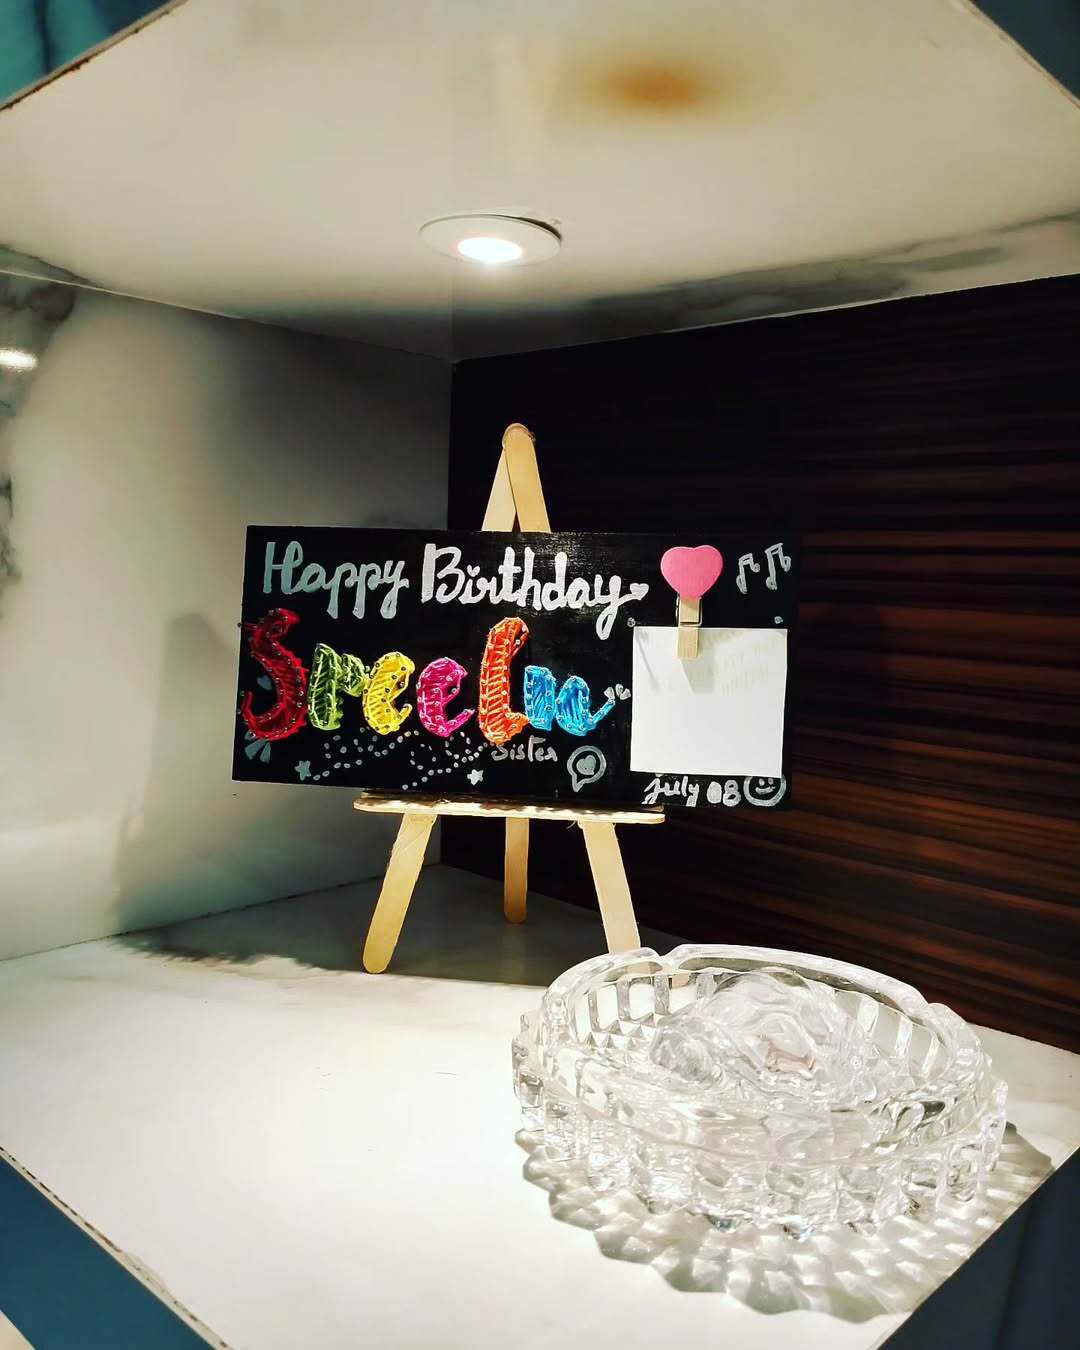 Happy Birthday
Sreelu
Sister
july 08